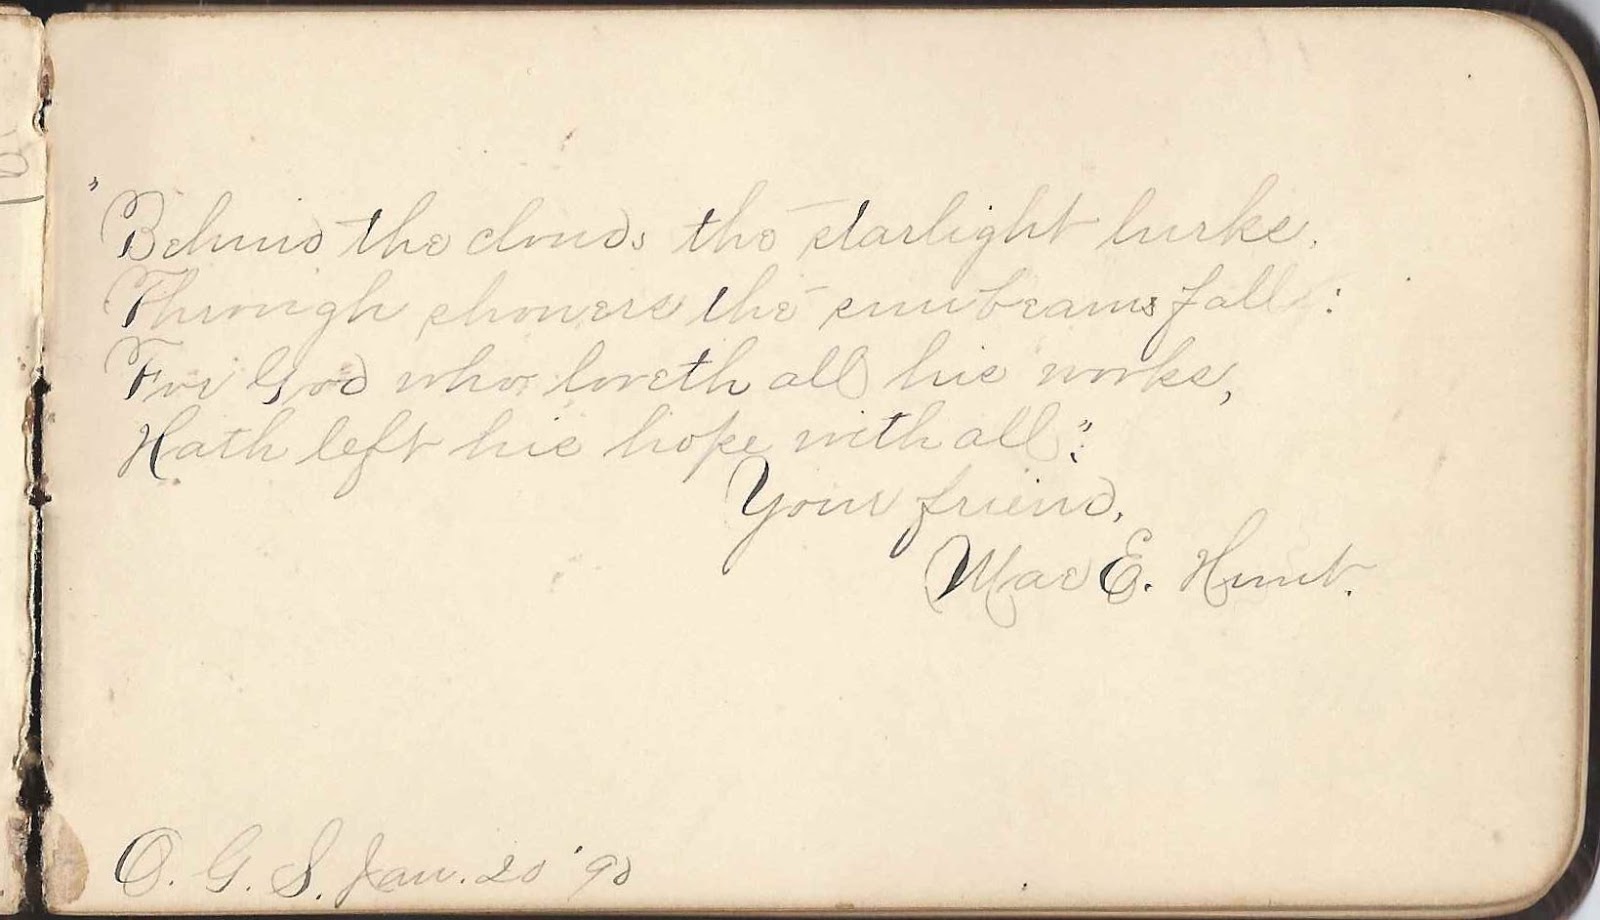 "Behind the clouds the starlight lurks.
Through showers the sunbeams fall:
For God who loveth all his works,
Hath left his hope with all":
Your friend,
Mae E. Hunt.
O. G. S. Jan. 20 '90